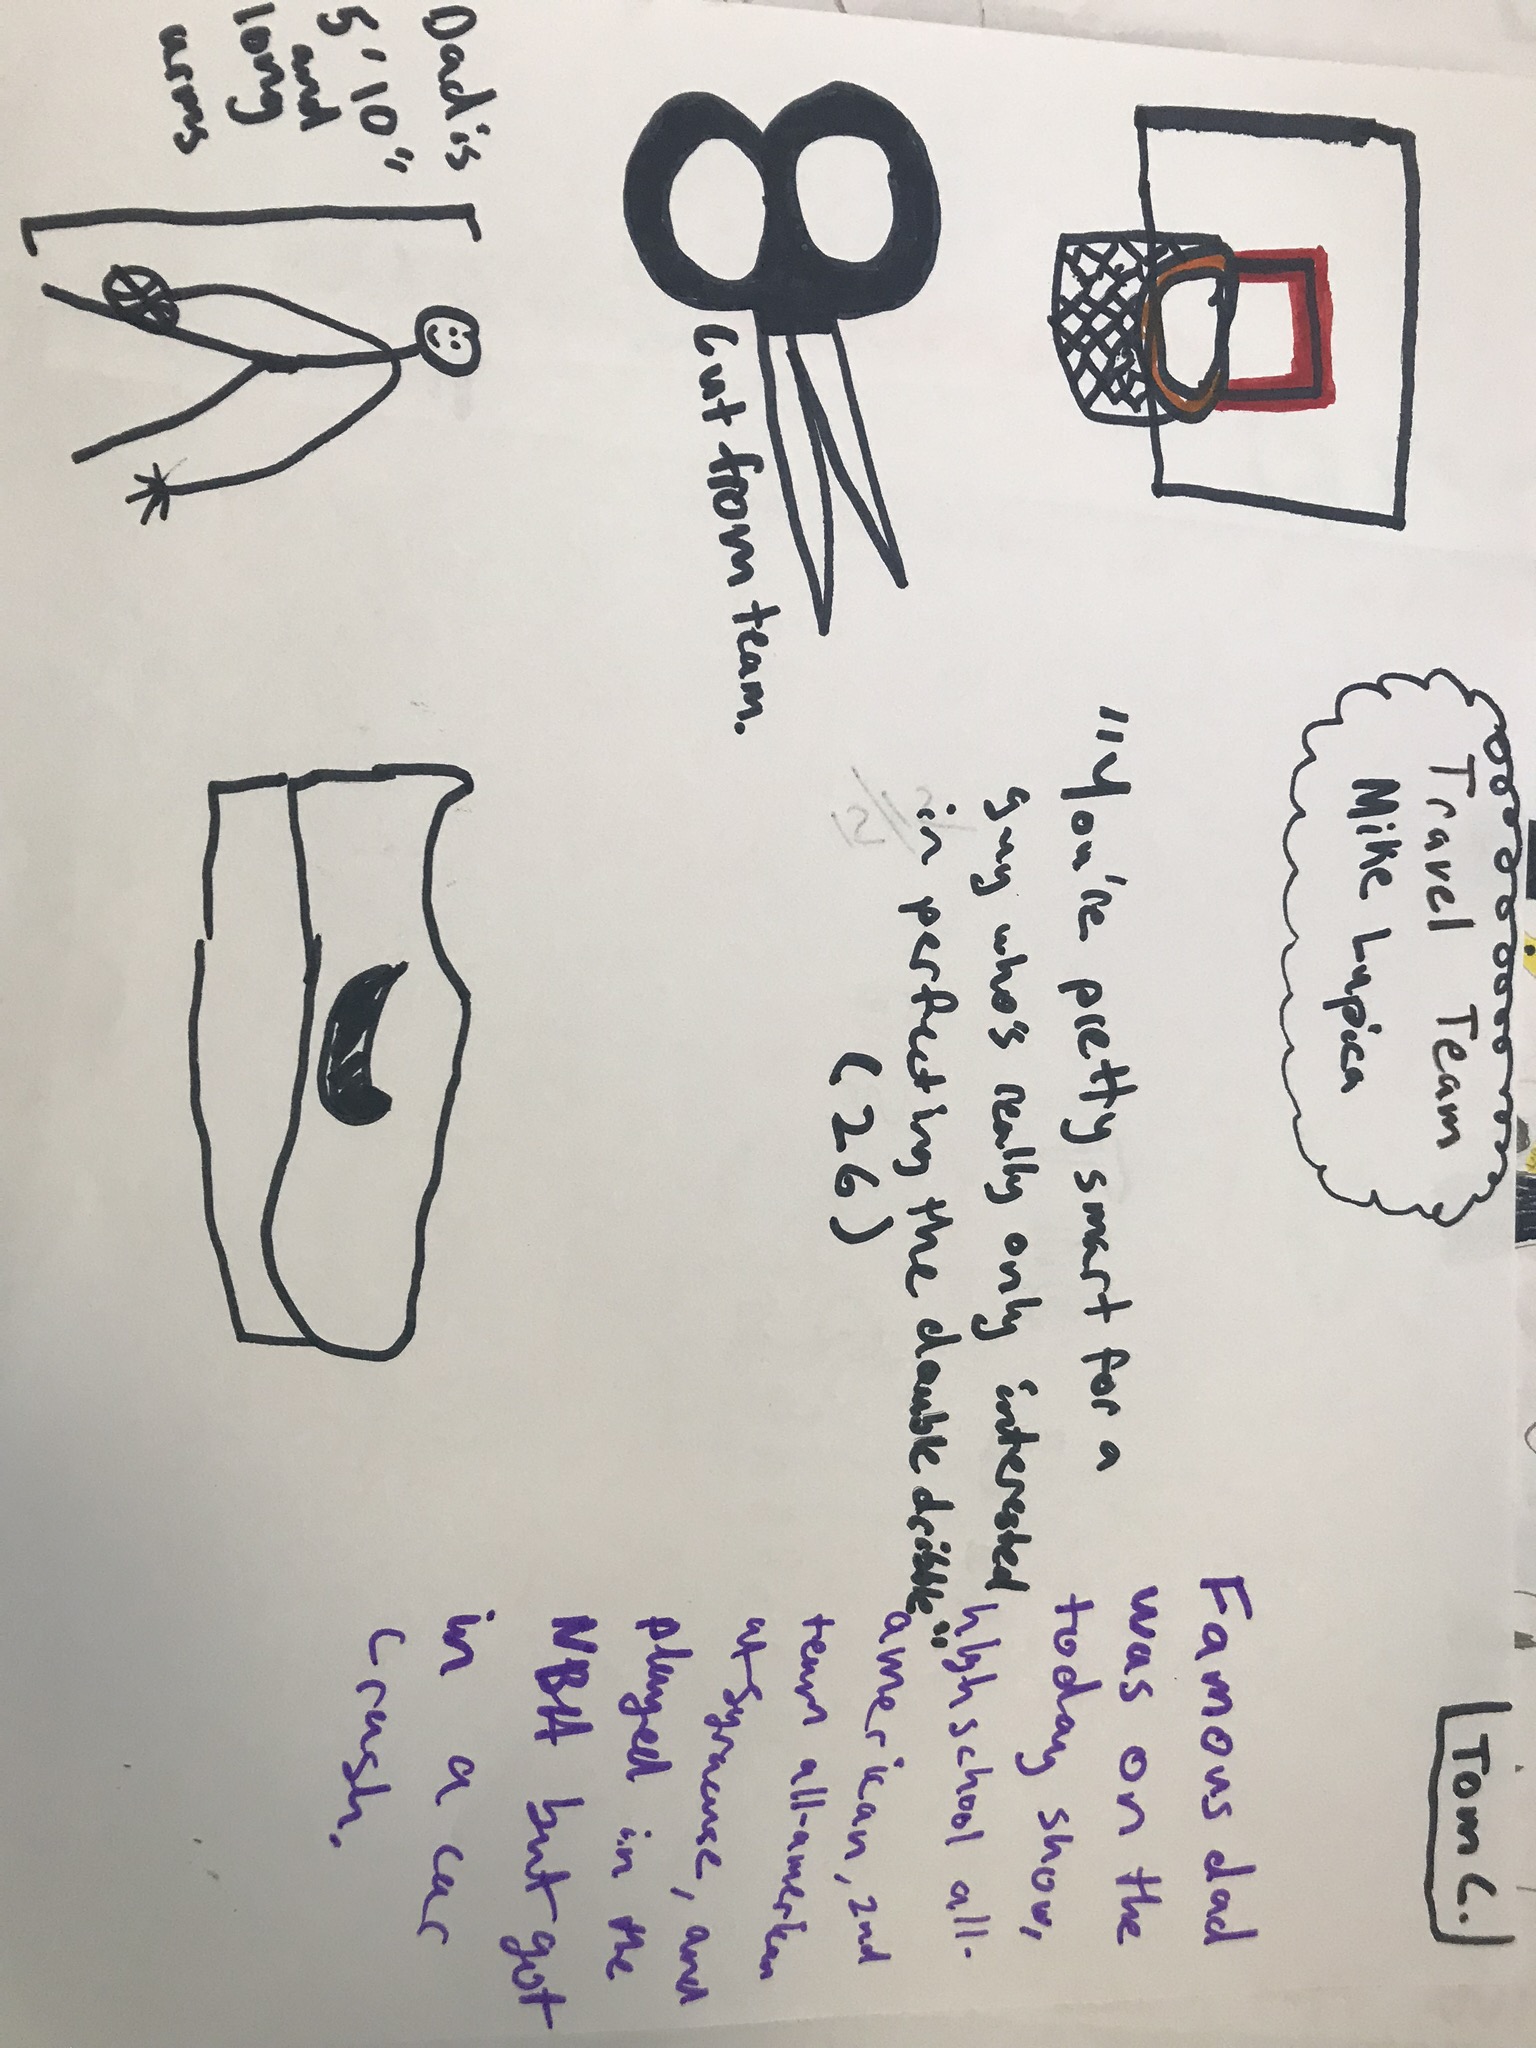 Travel Team
Mike Lupica
Tom C.
"You're pretty smart for a
guy who's really only interested
in perfecting the double dribble"
(26)
Cut from team.
Dad is
5'10"
and
long
arms
Famous dad
was on the
today show,
high school all-
american, 2nd
team all-american
at syracuse, and
played in the
NBA but got
in a car
crash.